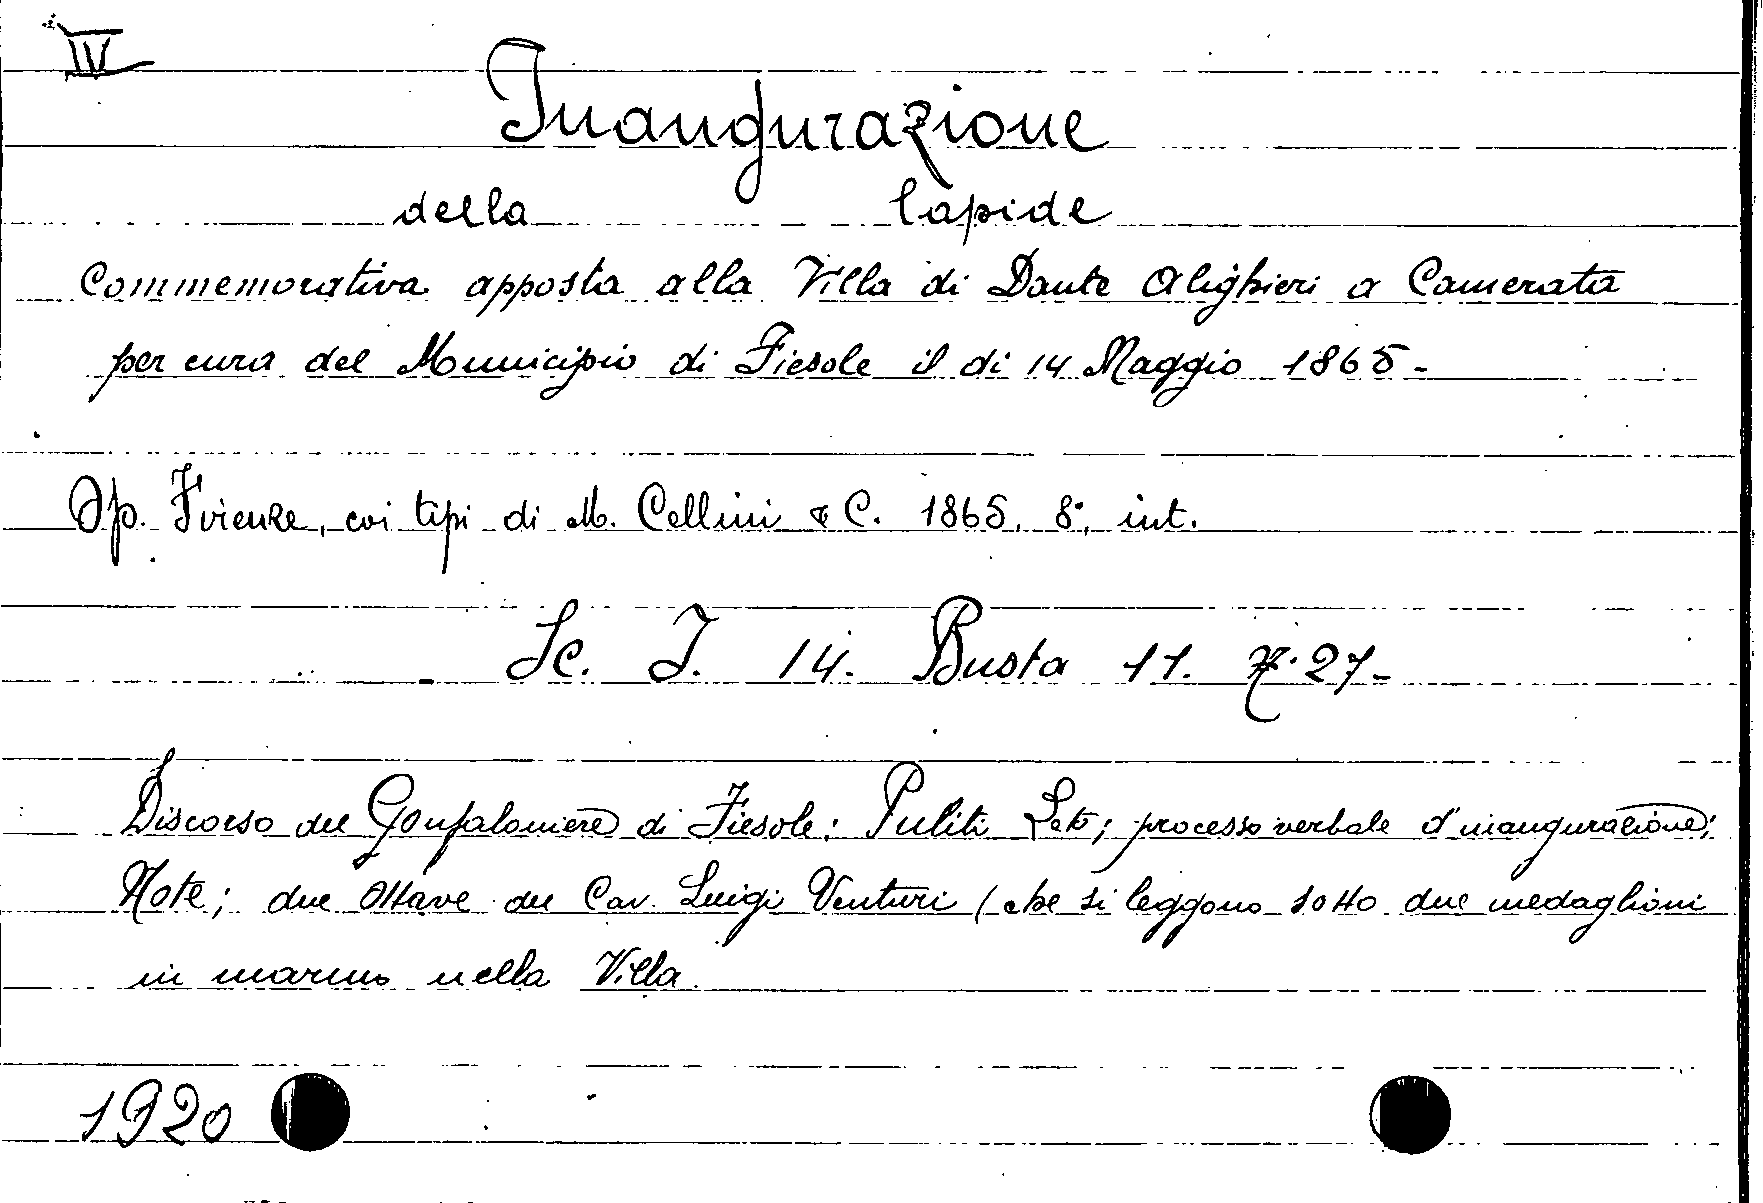 IV
Inaugurazione
della lapide
Commemorativa apposta alla Villa di Dante Alighieri a Camerata
per cura del Municipio di Fiesole il di 14 Maggio 1865-
Op. Firenze, coi tipi di M. Cellini & C. 1865, 8°, int.
Sc. I. 14. Busta 11. N. 27-
Discorso del Gonfaloniere di Fiesole: Puliti Leto; processo verbale d'inaugurazione;
Note; due Ottave del Cav. Luigi Venturi (che si leggono sotto due medaglioni
in marmo nella Villa
1920